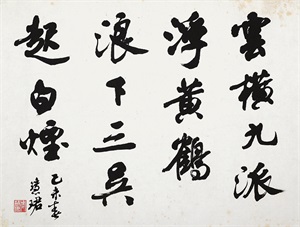 雲橫九派
浮黃鶴
浪下三吳
起白煙
己未春